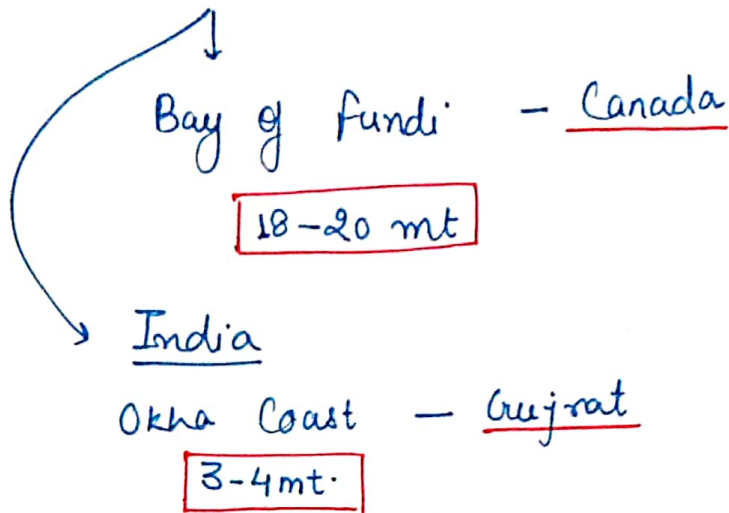 Bay of fundi - Canada
18-20 mt
India
Okha Coast - Gujrat
3-4mt.